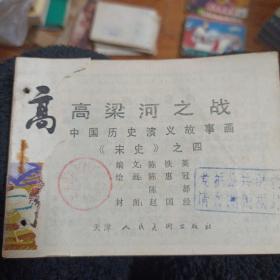 高
高梁河之战
中国历史演义故事画
《宋史》之四
编文：陈铁英
绘画：陈惠冠
陈都
封面：赵国经
天津人民美术出版社